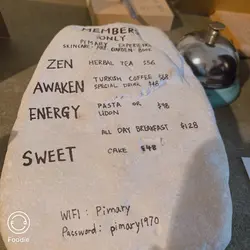 MEMBERS
ONLY
PIMARY EXPERIENCE
SKINCARE
ZEN HERBAL TEA $56
AWAKEN TURKISH COFFEE $68
SPECIAL DRINK
ENERGY PASTA OR $98
UDON
ALL DAY BREAKFAST $128
SWEET CAKE $48
WIFI : Pimary
Password: pimary1970
Foodie